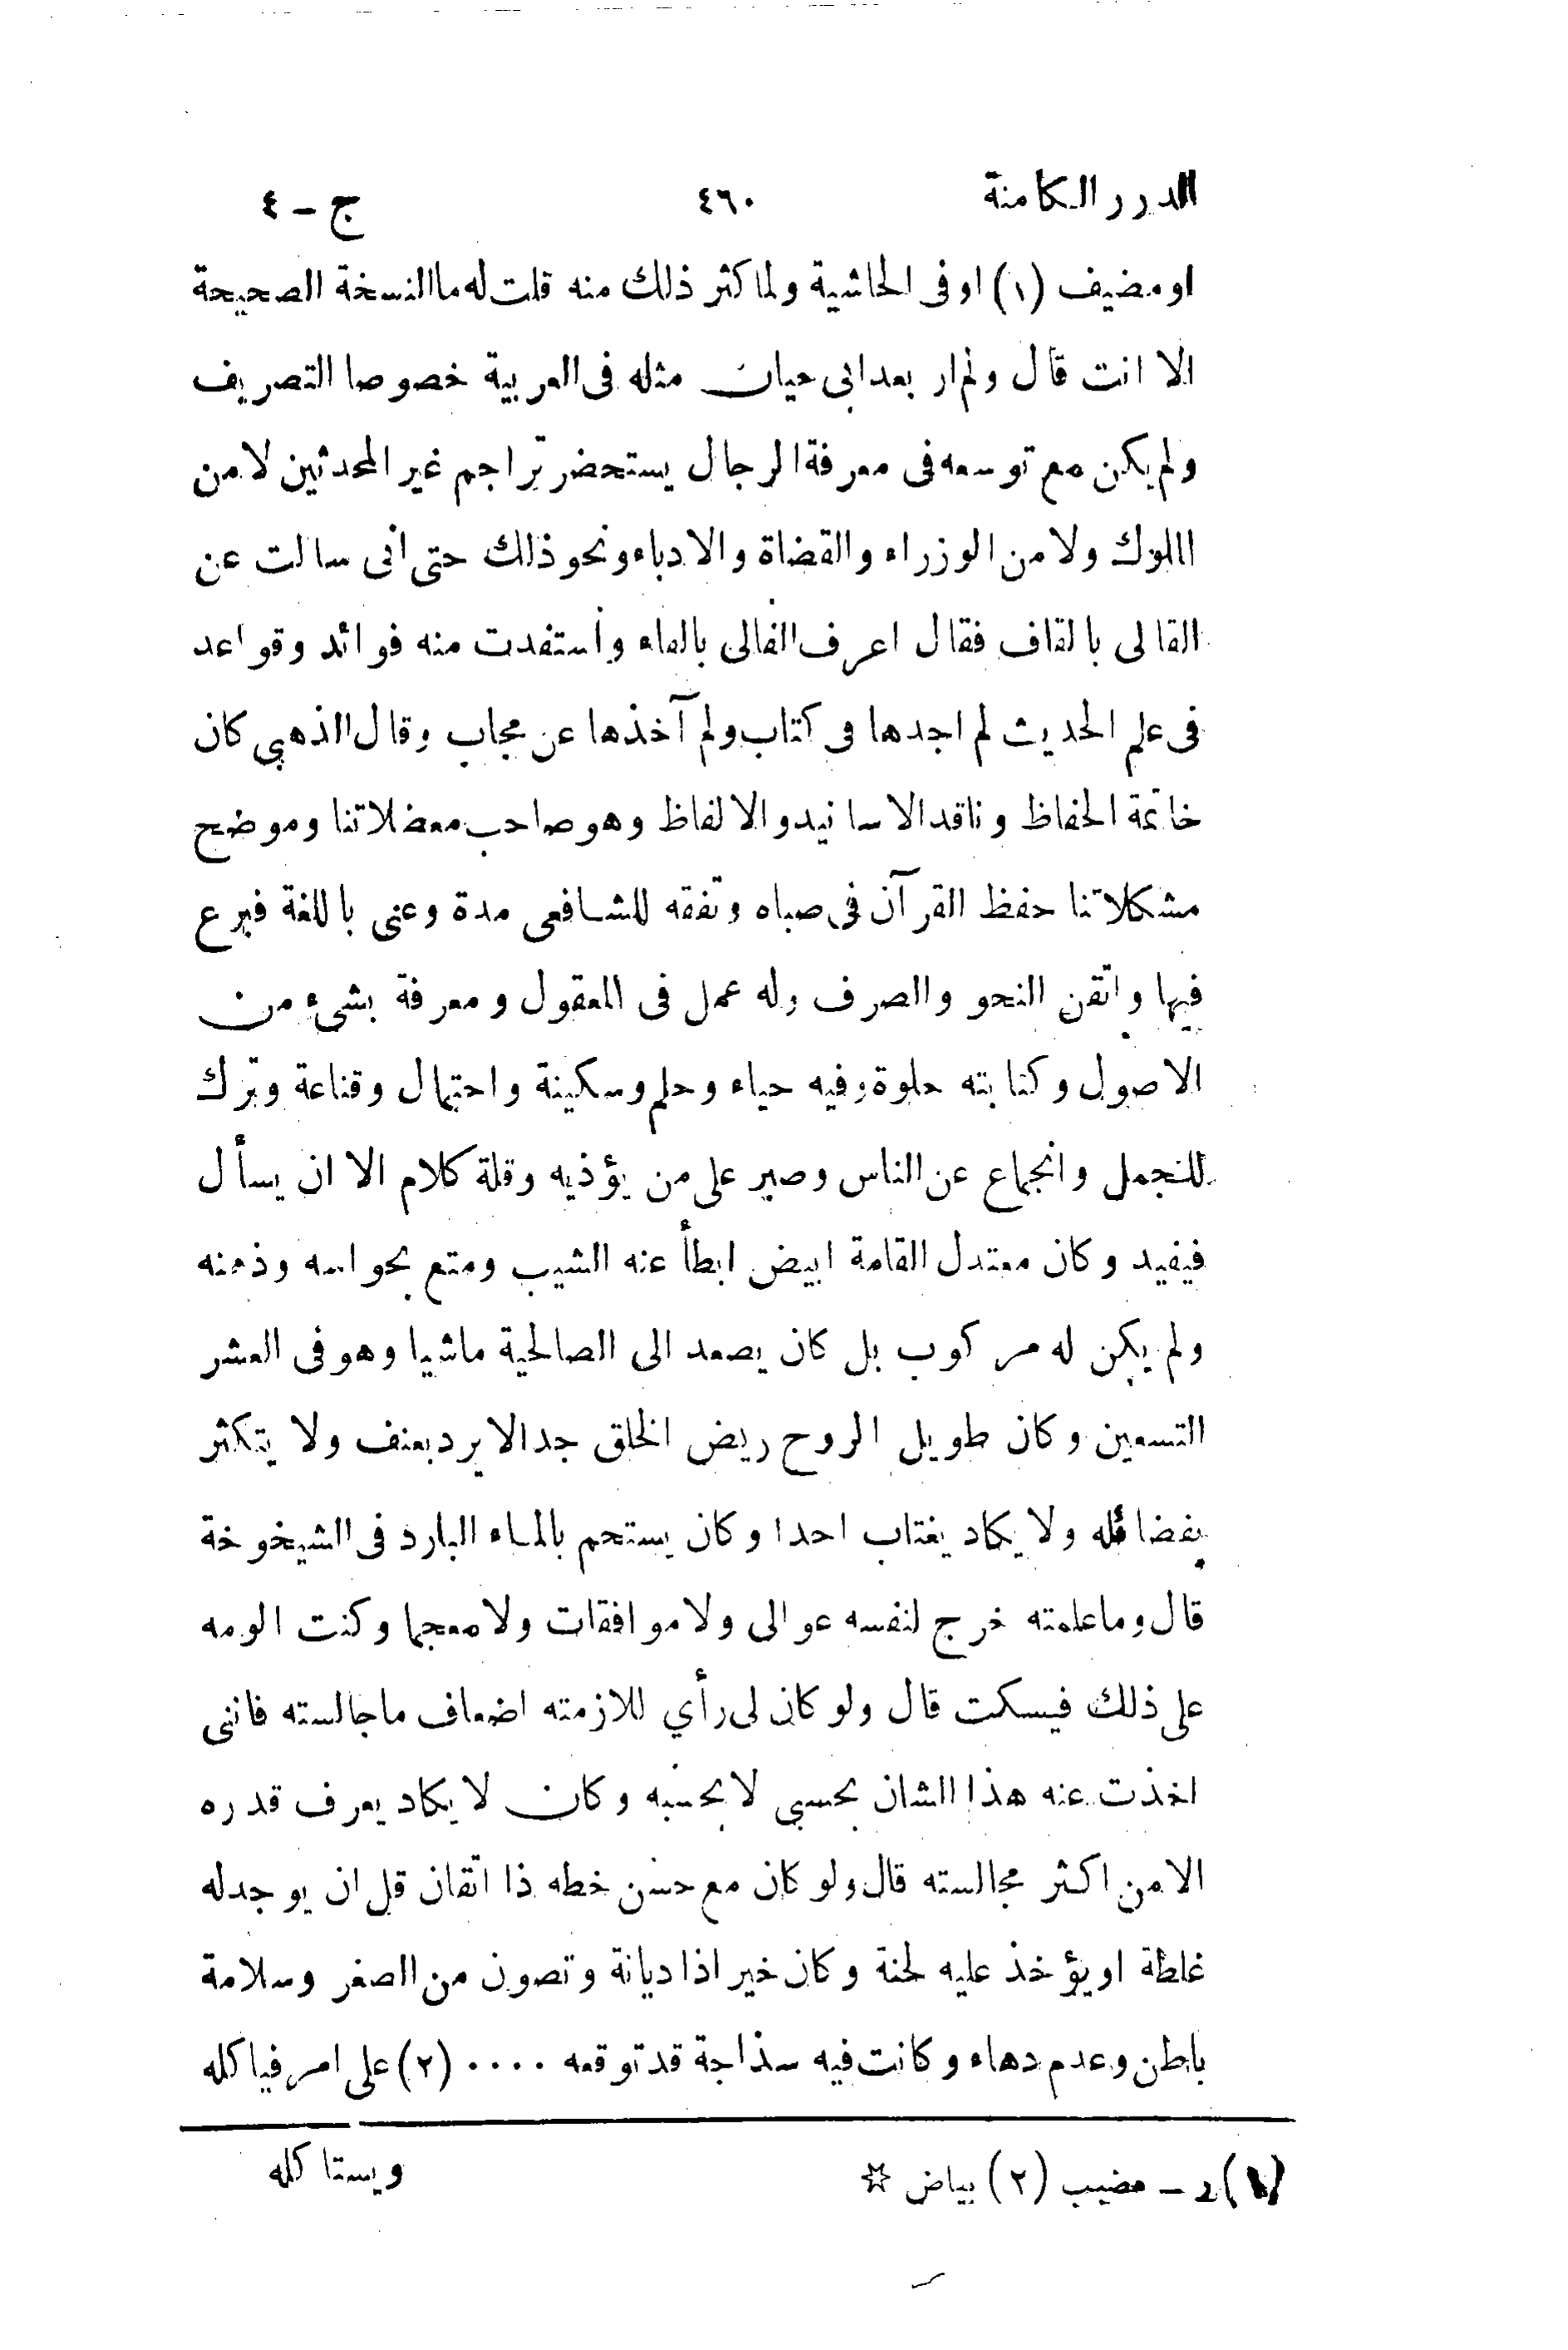 الدرر الكامنة ٤٦٠ ج - ٤
او مضيف (١) او فى الحاشية ولما كثر ذلك منه قلت له ما النسخة الصحيحة
الا انت قال ولم ار بعد ابى حيان مثله فى العربية خصوصا التصريف
ولم يكن مع توسعه فى معرفة الرجال يستحضر تراجم غير المحدثين لا من
الملوك ولا من الوزراء والقضاة والادباء ونحو ذلك حتى انى سالت عن
القالى بالقاف فقال اعرف الفالى بالفاء واستفدت منه فوائد وقواعد
فى علم الحديث لم اجدها فى كتاب ولم آخذها عن مجاب وقال الذهبي كان
خاتمة الحفاظ وناقد الاسانيد والالفاظ وهو صاحب معضلاتنا وموضح
مشكلاتنا حفظ القرآن فى صباه وتفقه للشافعى مدة وعنى باللغة فبرع
فيها واتقن النحو والصرف وله عمل فى المعقول ومعرفة بشىء من
الاصول وكتابته حلوة وفيه حياء وحلم وسكينة واحتمال وقناعة وترك
للتجمل وانجماع عن الناس وصبر على من يؤذيه وقلة كلام الا ان يسأل
فيفيد وكان معتدل القامة ابيض ابطأ عنه الشيب ومتع بحواسه وذهنه
ولم يكن له مركوب بل كان يصعد الى الصالحية ماشيا وهو فى العشر
التسعين وكان طويل الروح ريض الخلق جدا لا يرد بعنف ولا يتكثر
بفضائله ولا يكاد يغتاب احدا وكان يستحم بالماء البارد فى الشيخوخة
قال وما علمته خرج لنفسه عوالى ولا موافقات ولا معجما وكنت الومه
على ذلك فيسكت قال ولو كان لى رأي للازمته اضعاف ما جالسته فاننى
اخذت عنه هذا الشان بحسبي لا بحسبه وكان لا يكاد يعرف قدره
الا من اكثر مجالسته قال ولو كان مع حسن خطه ذا اتقان قل ان يوجد له
غلطة او يؤخذ عليه لحنة وكان خيرا ذا ديانة وتصون من الصغر وسلامة
باطن وعدم دهاء وكانت فيه سذاجة قد توقعه .... (٢) على امر فياكله
ويستاكله
(١) ر - مضبب (٢) بياض ☆